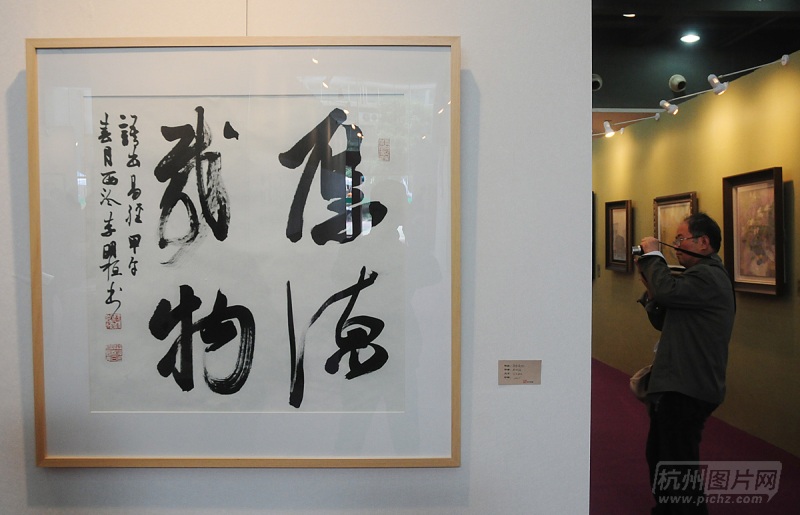 厚德
載物
語出易經 甲午
春月西泠李明
杭州图片网
www.pichz.com